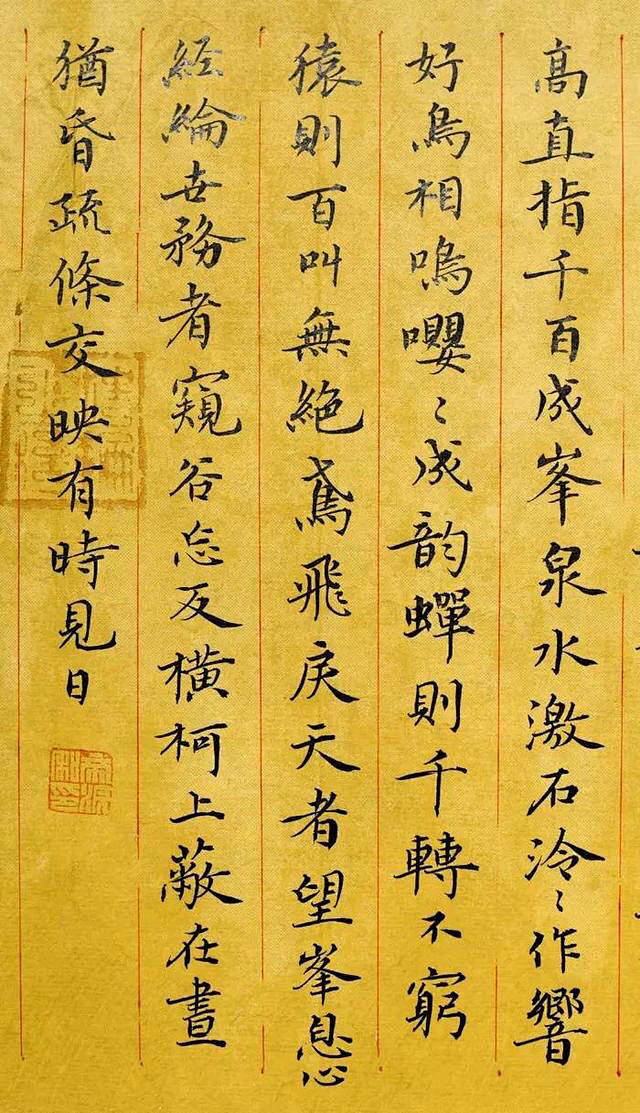 高直指千百成峯泉水激石泠〻作響
好鳥相鳴嚶〻成韵蟬則千轉不窮
猿則百叫無絕鳶飛戾天者望峯息心
經綸世務者窺谷忘反橫柯上蔽在晝
猶昏疏條交映有時見日